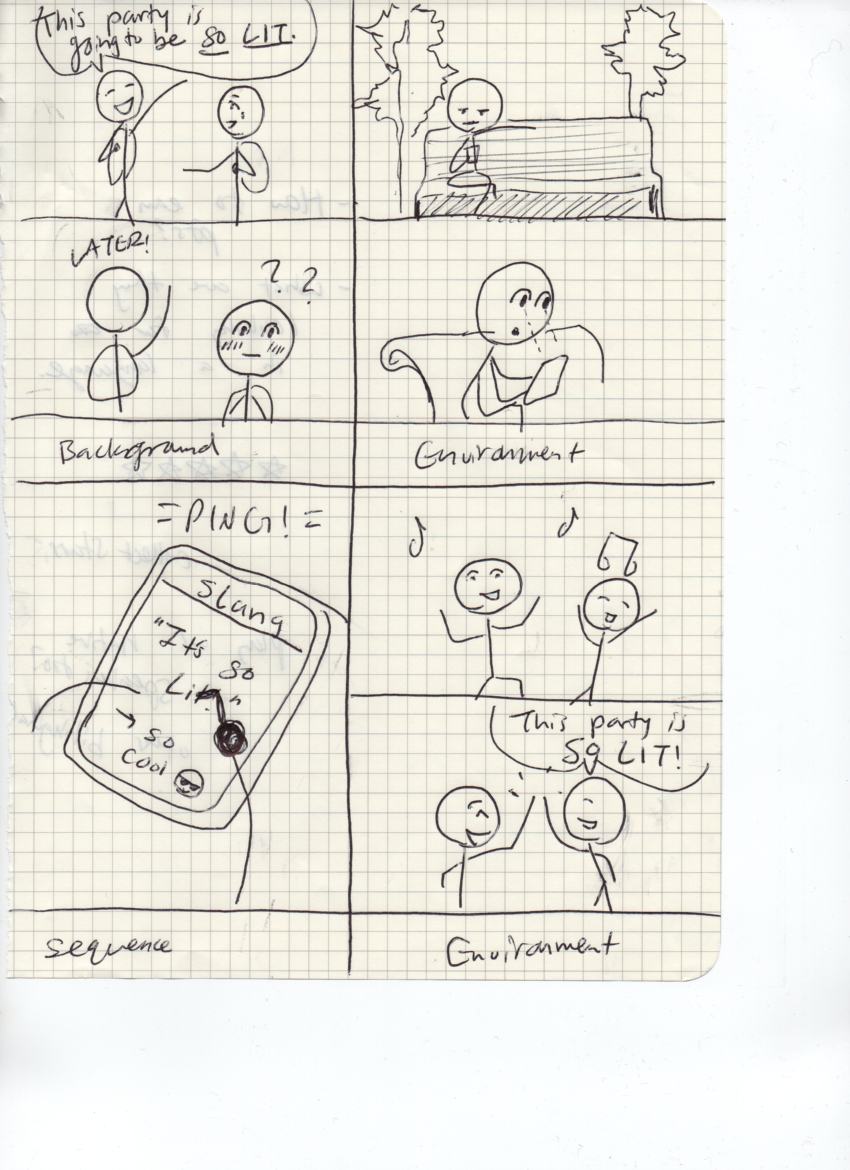 This party is
going to be so LIT.
LATER!
? ?
Background
Environment
=PING!=
slang
"It's so
Lit."
→ so
cool
This party is
SO LIT!
sequence
Environment